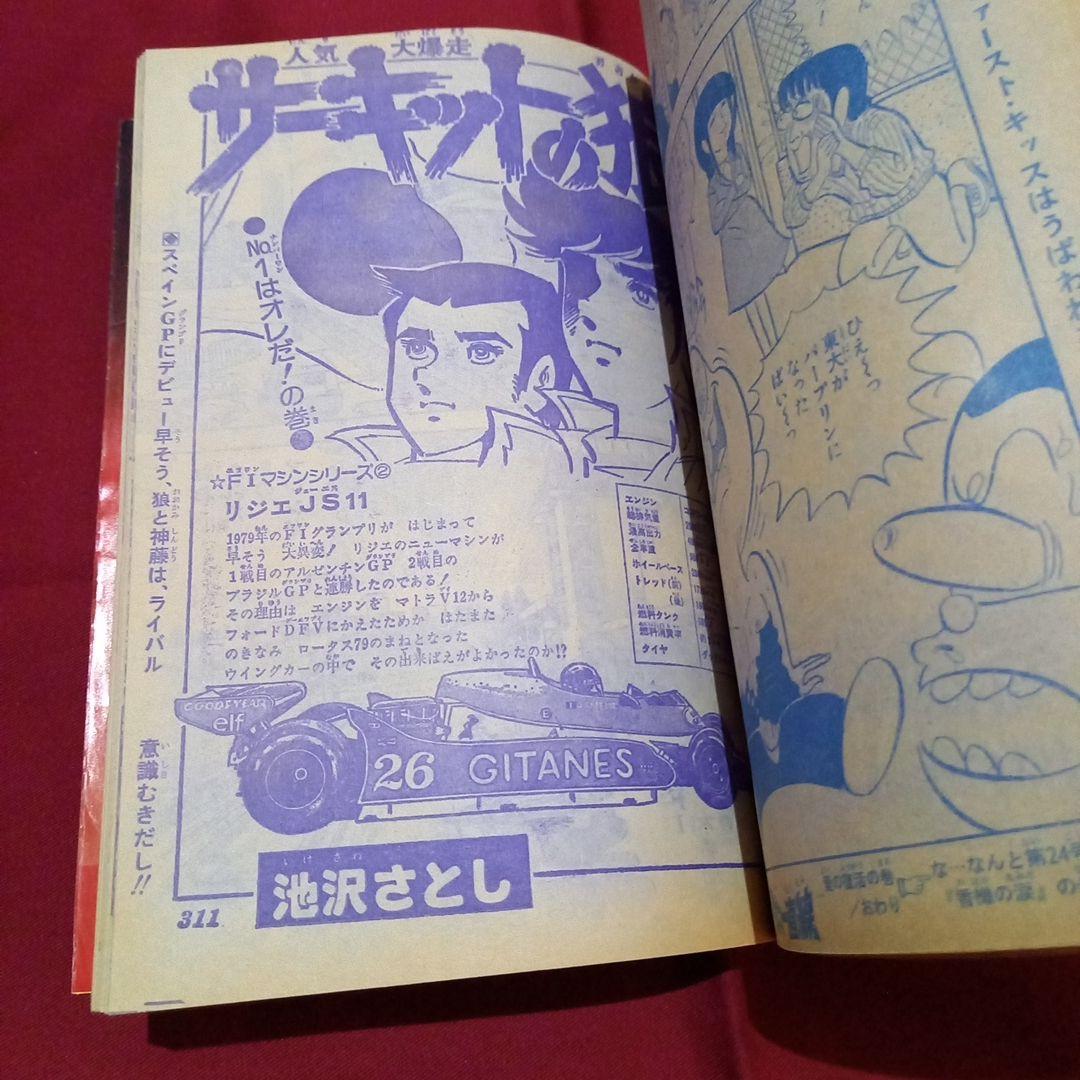 人気 大爆走
サーキットの狼
●No.1はオレだ!の巻●
◆スペインGPにデビュー早そう、狼と神藤は、ライバル意識むきだし!!
☆F1マシンシリーズ②
リジエJS11
1979年のF1グランプリが はじまって
早そう 大異変! リジエのニューマシンが
1戦目のアルゼンチンGP 2戦目の
ブラジルGPと連勝したのである!
その理由は エンジンを マトラV12から
フォードDFVにかえたためか はたまた
のきなみ ロータス79のまねとなった
ウイングカーの中で その出来ばえがよかったのか!?
エンジン
総排気量
最高出力
全車重
ホイールベース
トレッド(前)
(後)
燃料タンク
燃料消費率
タイヤ
GOODYEAR
elf
26 GITANES
池沢さとし
311
ァースト・キッスはうばわれ
ひえ〜っ
東大が
パープリンに
なった
ばい〜っ
な…なんと第24
復活の巻
/おわり